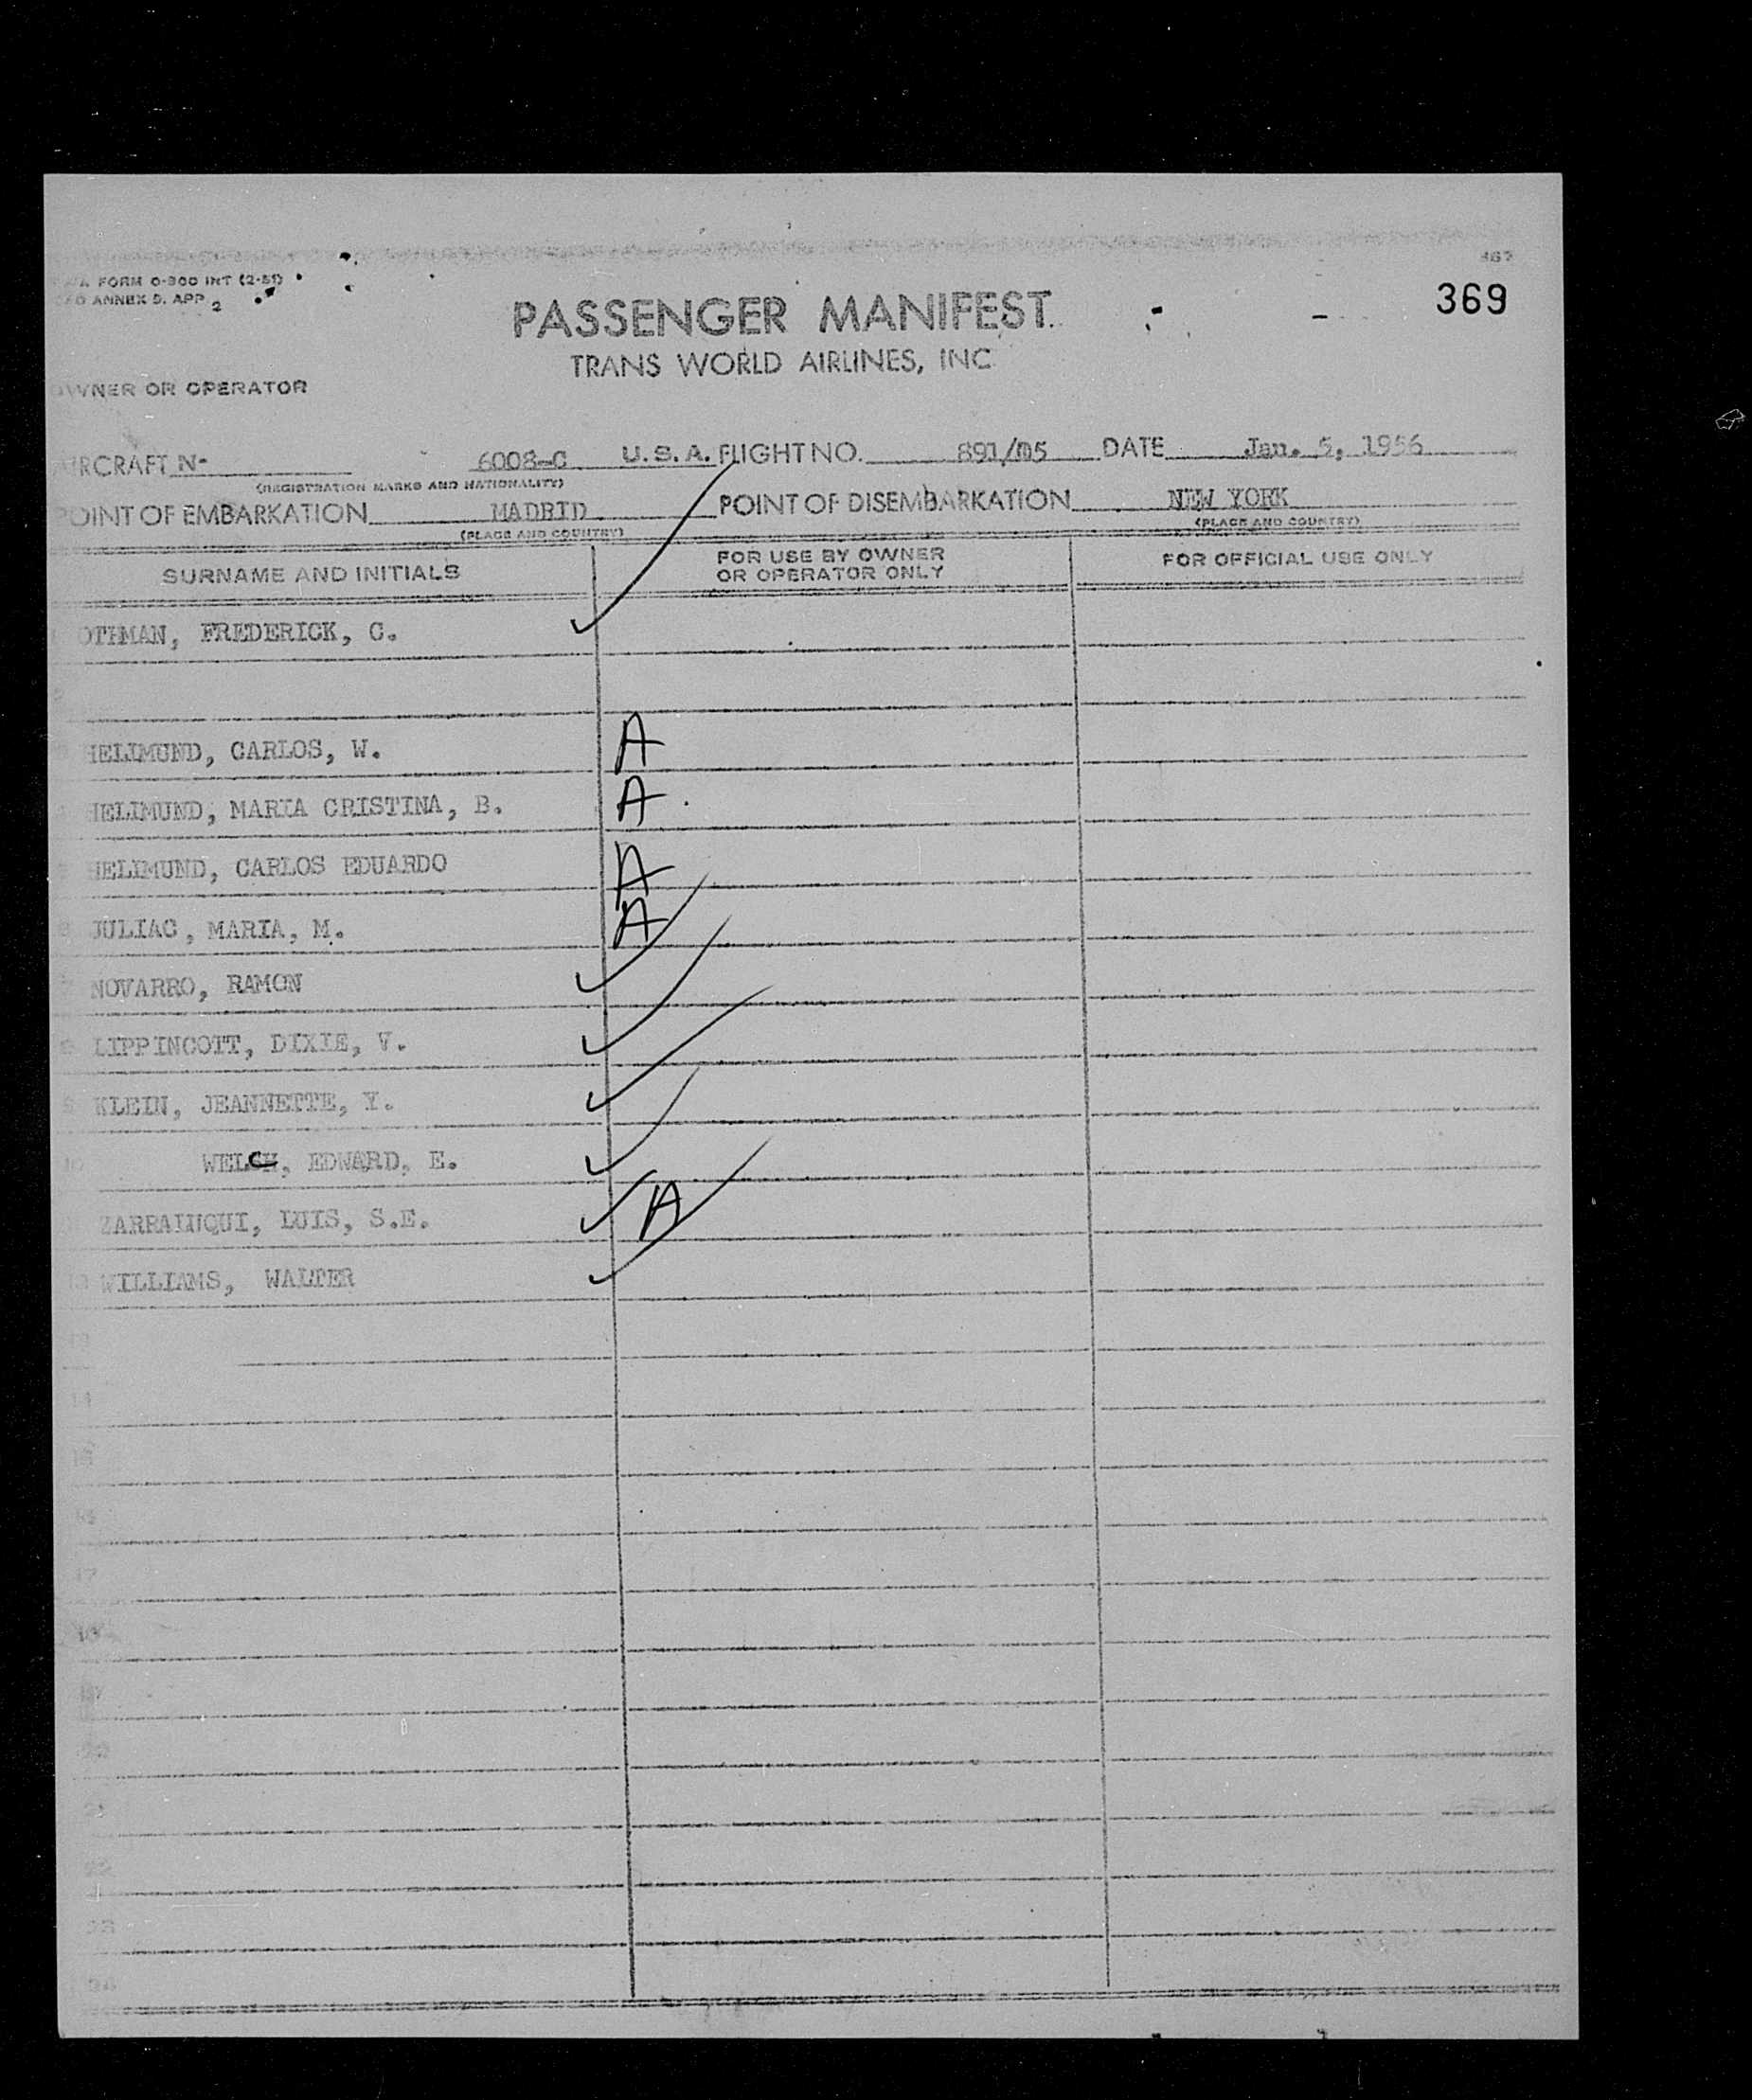 367
FORM O-800 INT (2-51)
ANNEX 9. APP 2
369
PASSENGER MANIFEST
TRANS WORLD AIRLINES, INC
OWNER OR OPERATOR
AIRCRAFT N- 6008-C U.S.A. FLIGHT NO. 891/05 DATE Jan. 5, 1956
(REGISTRATION MARKS AND NATIONALITY)
POINT OF EMBARKATION MADRID POINT OF DISEMBARKATION NEW YORK
(PLACE AND COUNTRY) (PLACE AND COUNTRY)
SURNAME AND INITIALS FOR USE BY OWNER OR OPERATOR ONLY FOR OFFICIAL USE ONLY
OTHMAN, FREDERICK, C.
HELLMUND, CARLOS, W. A
HELLMUND, MARIA CRISTINA, B. A
HELLMUND, CARLOS EDUARDO A
JULIAC, MARIA, M. A
NOVARRO, RAMON
LIPPINCOTT, DIXIE, V.
KLEIN, JEANNETTE, Y.
10 WELCH, EDWARD, E.
ZARRAINQUI, LUIS, S.E. A
WILLIAMS, WALTER
13
14
15
16
17
18
19
20
21
22
23
24